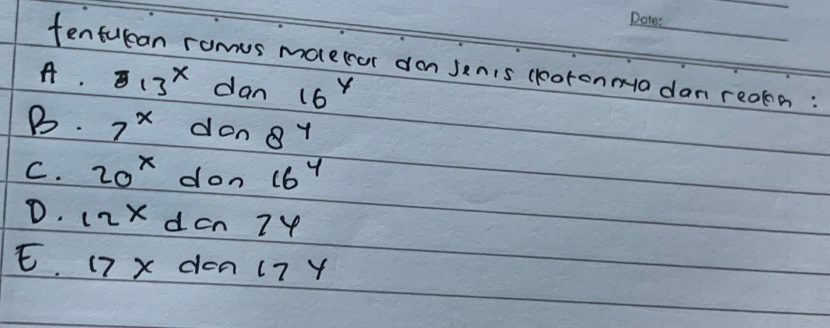 Date:
Tentukan rumus molekul dan jenis ikatannya dari reaksi :
A. 13^x dan 16^y
B. 7^x dan 8^y
C. 20^x dan 16^y
D. 12 x dan 7 y
E. 17 x dan 17 y